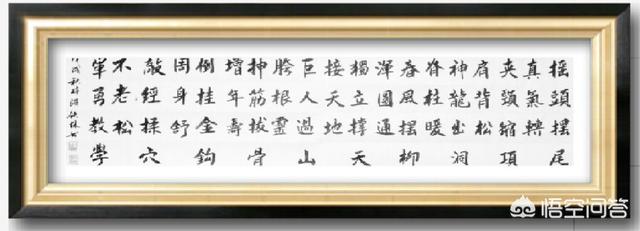 搖頭擺尾
真氣轉
夾頭縮項
肩背松
神龍出洞
脊柱暖
春風擺柳
渾圓通
獨立撐天
接天地
巨人過山
胯根靈
抻筋拔骨
增年壽
倒挂金鉤
周身舒
敲經揉穴
不老松
單勇教學
戊戌秋時
悟空问答